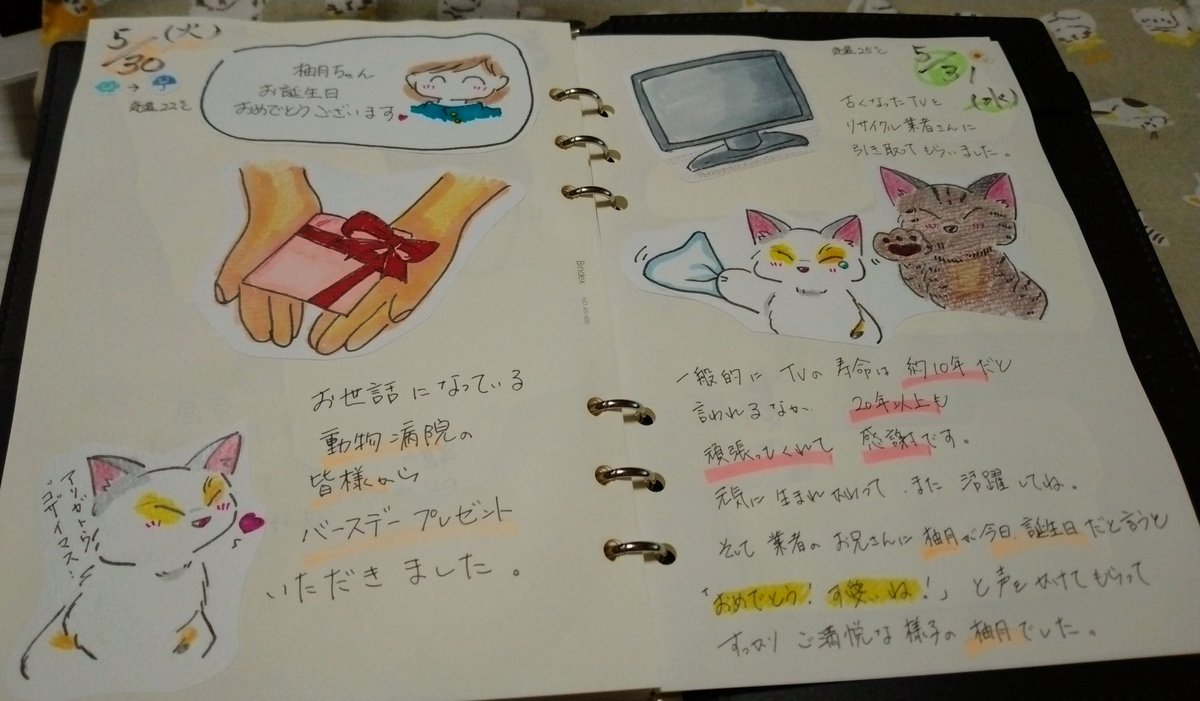 5/30 (火)
気温 22℃
柚月ちゃん
お誕生日
おめでとうございます
お世話になっている
動物病院の
皆様から
バースデープレゼント
いただきました。
アリガトウ
ゴザイマス!
Bindex
気温 25℃
5/31 (水)
古くなったTVを
リサイクル業者さんに
引き取ってもらいました。
一般的にTVの寿命は約10年だと
言われるなか 20年以上も
頑張ってくれて 感謝です。
元気に生まれかわって、また活躍してね。
そして業者のお兄さんに柚月が今日誕生日だと言うと
「おめでとう!可愛いね!」と声をかけてもらって
すっかりご満悦な様子の柚月でした。